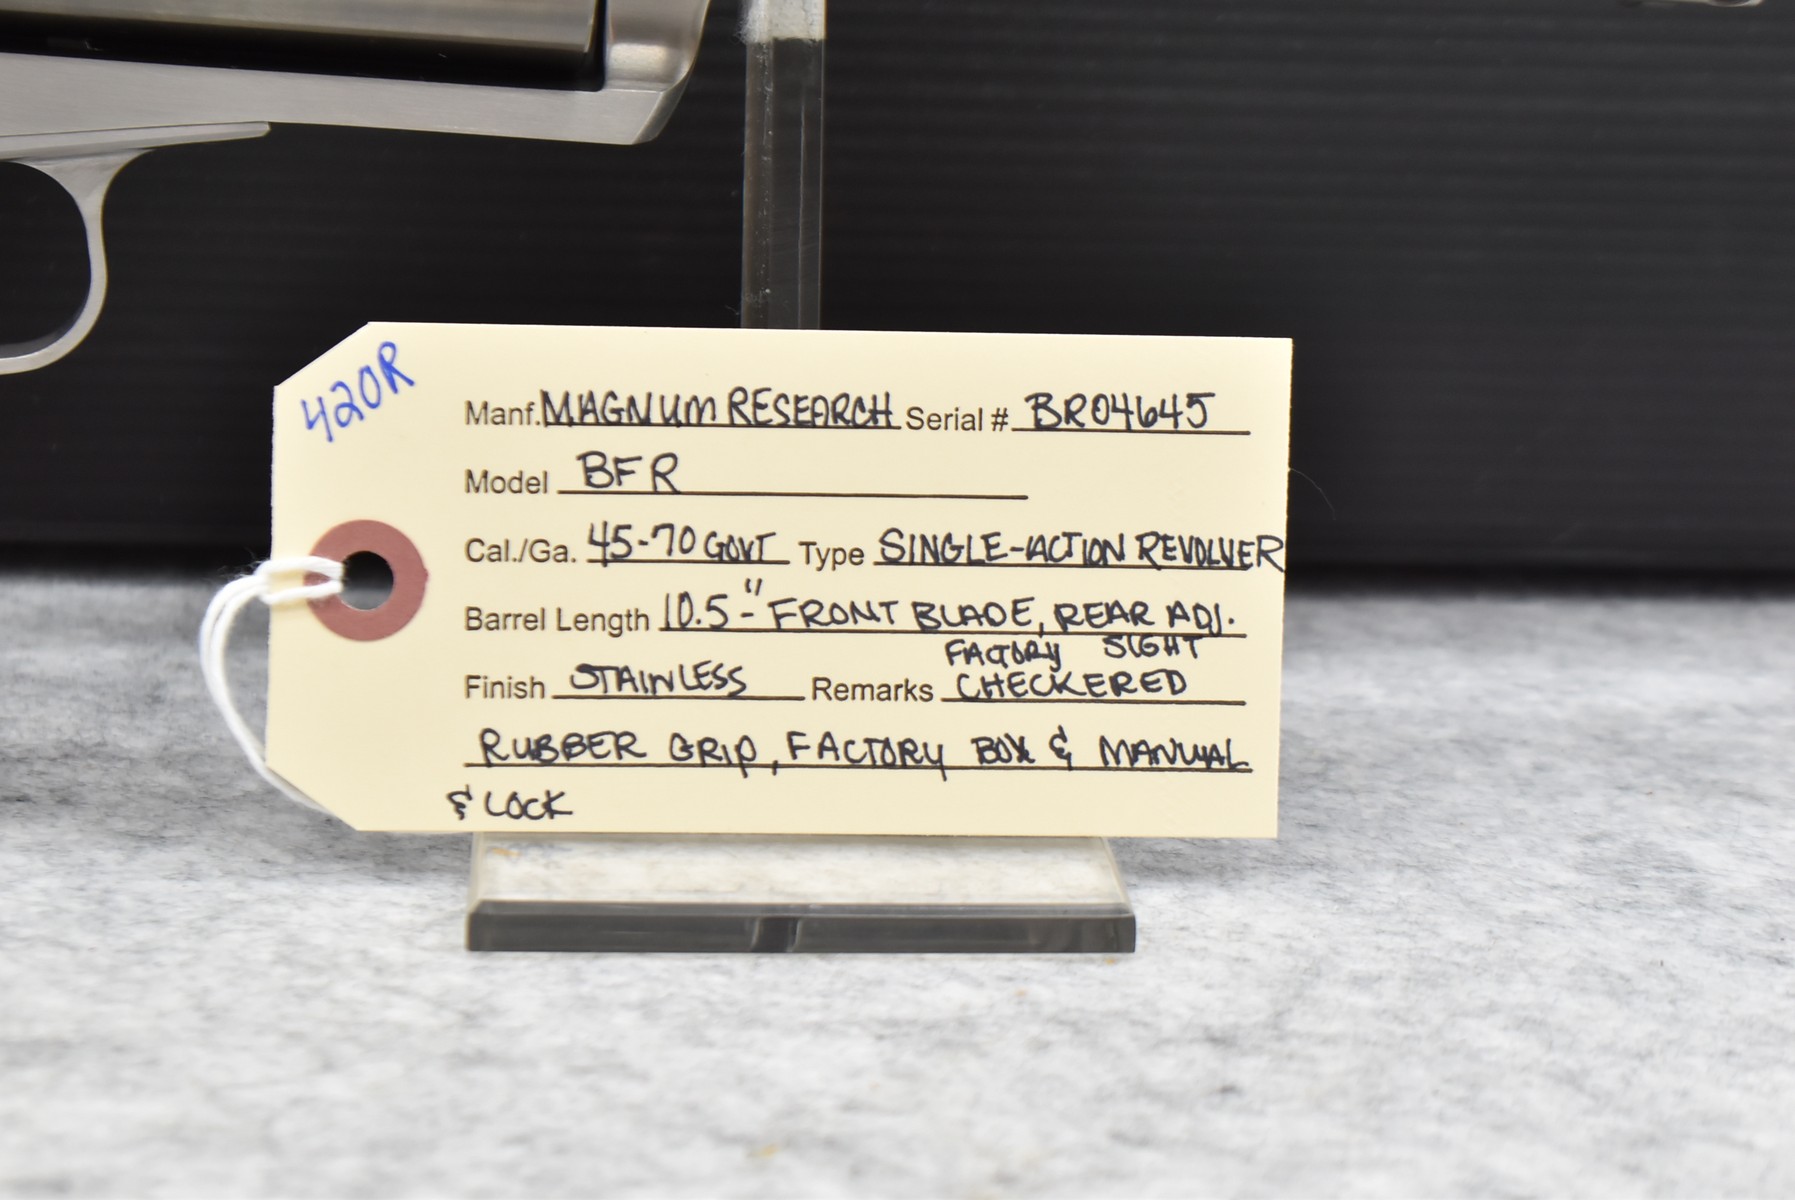 420R
Manf. MAGNUM RESEARCH Serial # BR04645
Model BFR
Cal./Ga. 45-70 GOVT Type SINGLE-ACTION REVOLVER
Barrel Length 10.5-" FRONT BLADE, REAR ADJ.
SIGHT
Finish STAINLESS Remarks FACTORY CHECKERED
RUBBER GRIP, FACTORY BOX & MANUAL
& LOCK